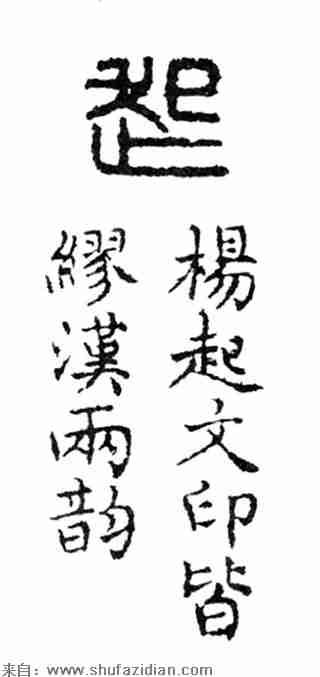 起
楊起文印皆
繆漢兩韵
来自：www.shufazidian.com